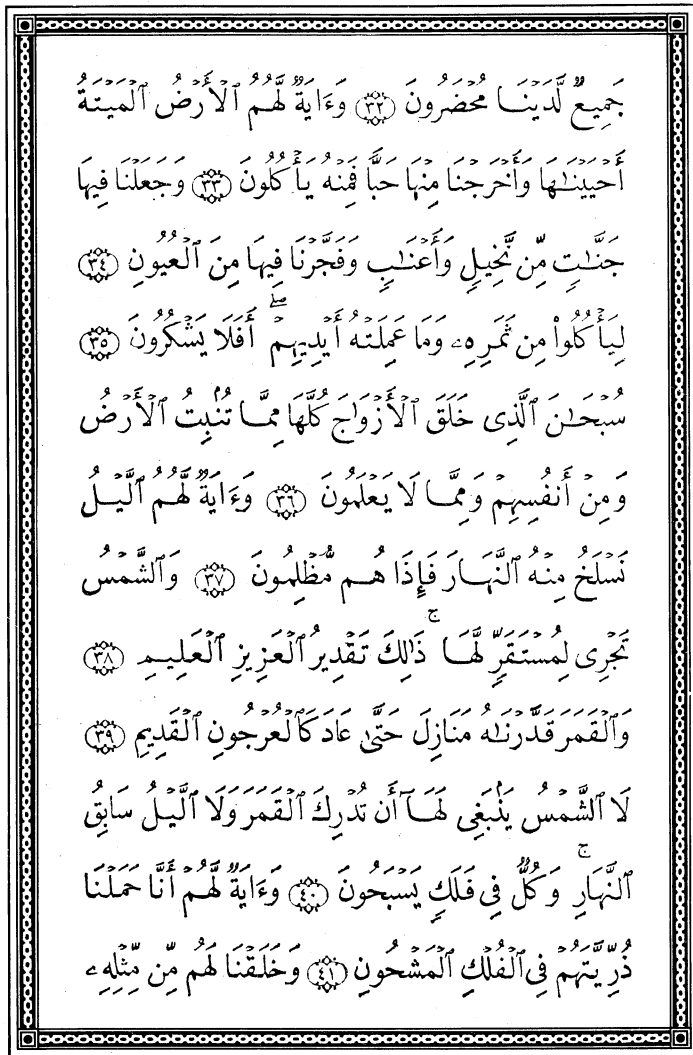 جَمِيعٌ لَّدَيْنَا مُحْضَرُونَ ٣٢ وَءَايَةٌ لَّهُمُ ٱلْأَرْضُ ٱلْمَيْتَةُ
أَحْيَيْنَـٰهَا وَأَخْرَجْنَا مِنْهَا حَبًّا فَمِنْهُ يَأْكُلُونَ ٣٣ وَجَعَلْنَا فِيهَا
جَنَّـٰتٍ مِّن نَّخِيلٍ وَأَعْنَـٰبٍ وَفَجَّرْنَا فِيهَا مِنَ ٱلْعُيُونِ ٣٤
لِيَأْكُلُوا۟ مِن ثَمَرِهِۦ وَمَا عَمِلَتْهُ أَيْدِيهِمْ ۖ أَفَلَا يَشْكُرُونَ ٣٥
سُبْحَـٰنَ ٱلَّذِى خَلَقَ ٱلْأَزْوَٰجَ كُلَّهَا مِمَّا تُنۢبِتُ ٱلْأَرْضُ
وَمِنْ أَنفُسِهِمْ وَمِمَّا لَا يَعْلَمُونَ ٣٦ وَءَايَةٌ لَّهُمُ ٱلَّيْلُ
نَسْلَخُ مِنْهُ ٱلنَّهَارَ فَإِذَا هُم مُّظْلِمُونَ ٣٧ وَٱلشَّمْسُ
تَجْرِى لِمُسْتَقَرٍّ لَّهَا ۚ ذَٰلِكَ تَقْدِيرُ ٱلْعَزِيزِ ٱلْعَلِيمِ ٣٨
وَٱلْقَمَرَ قَدَّرْنَـٰهُ مَنَازِلَ حَتَّىٰ عَادَ كَٱلْعُرْجُونِ ٱلْقَدِيمِ ٣٩
لَا ٱلشَّمْسُ يَنۢبَغِى لَهَآ أَن تُدْرِكَ ٱلْقَمَرَ وَلَا ٱلَّيْلُ سَابِقُ
ٱلنَّهَارِ ۚ وَكُلٌّ فِى فَلَكٍ يَسْبَحُونَ ٤٠ وَءَايَةٌ لَّهُمْ أَنَّا حَمَلْنَا
ذُرِّيَّتَهُمْ فِى ٱلْفُلْكِ ٱلْمَشْحُونِ ٤١ وَخَلَقْنَا لَهُم مِّن مِّثْلِهِۦ